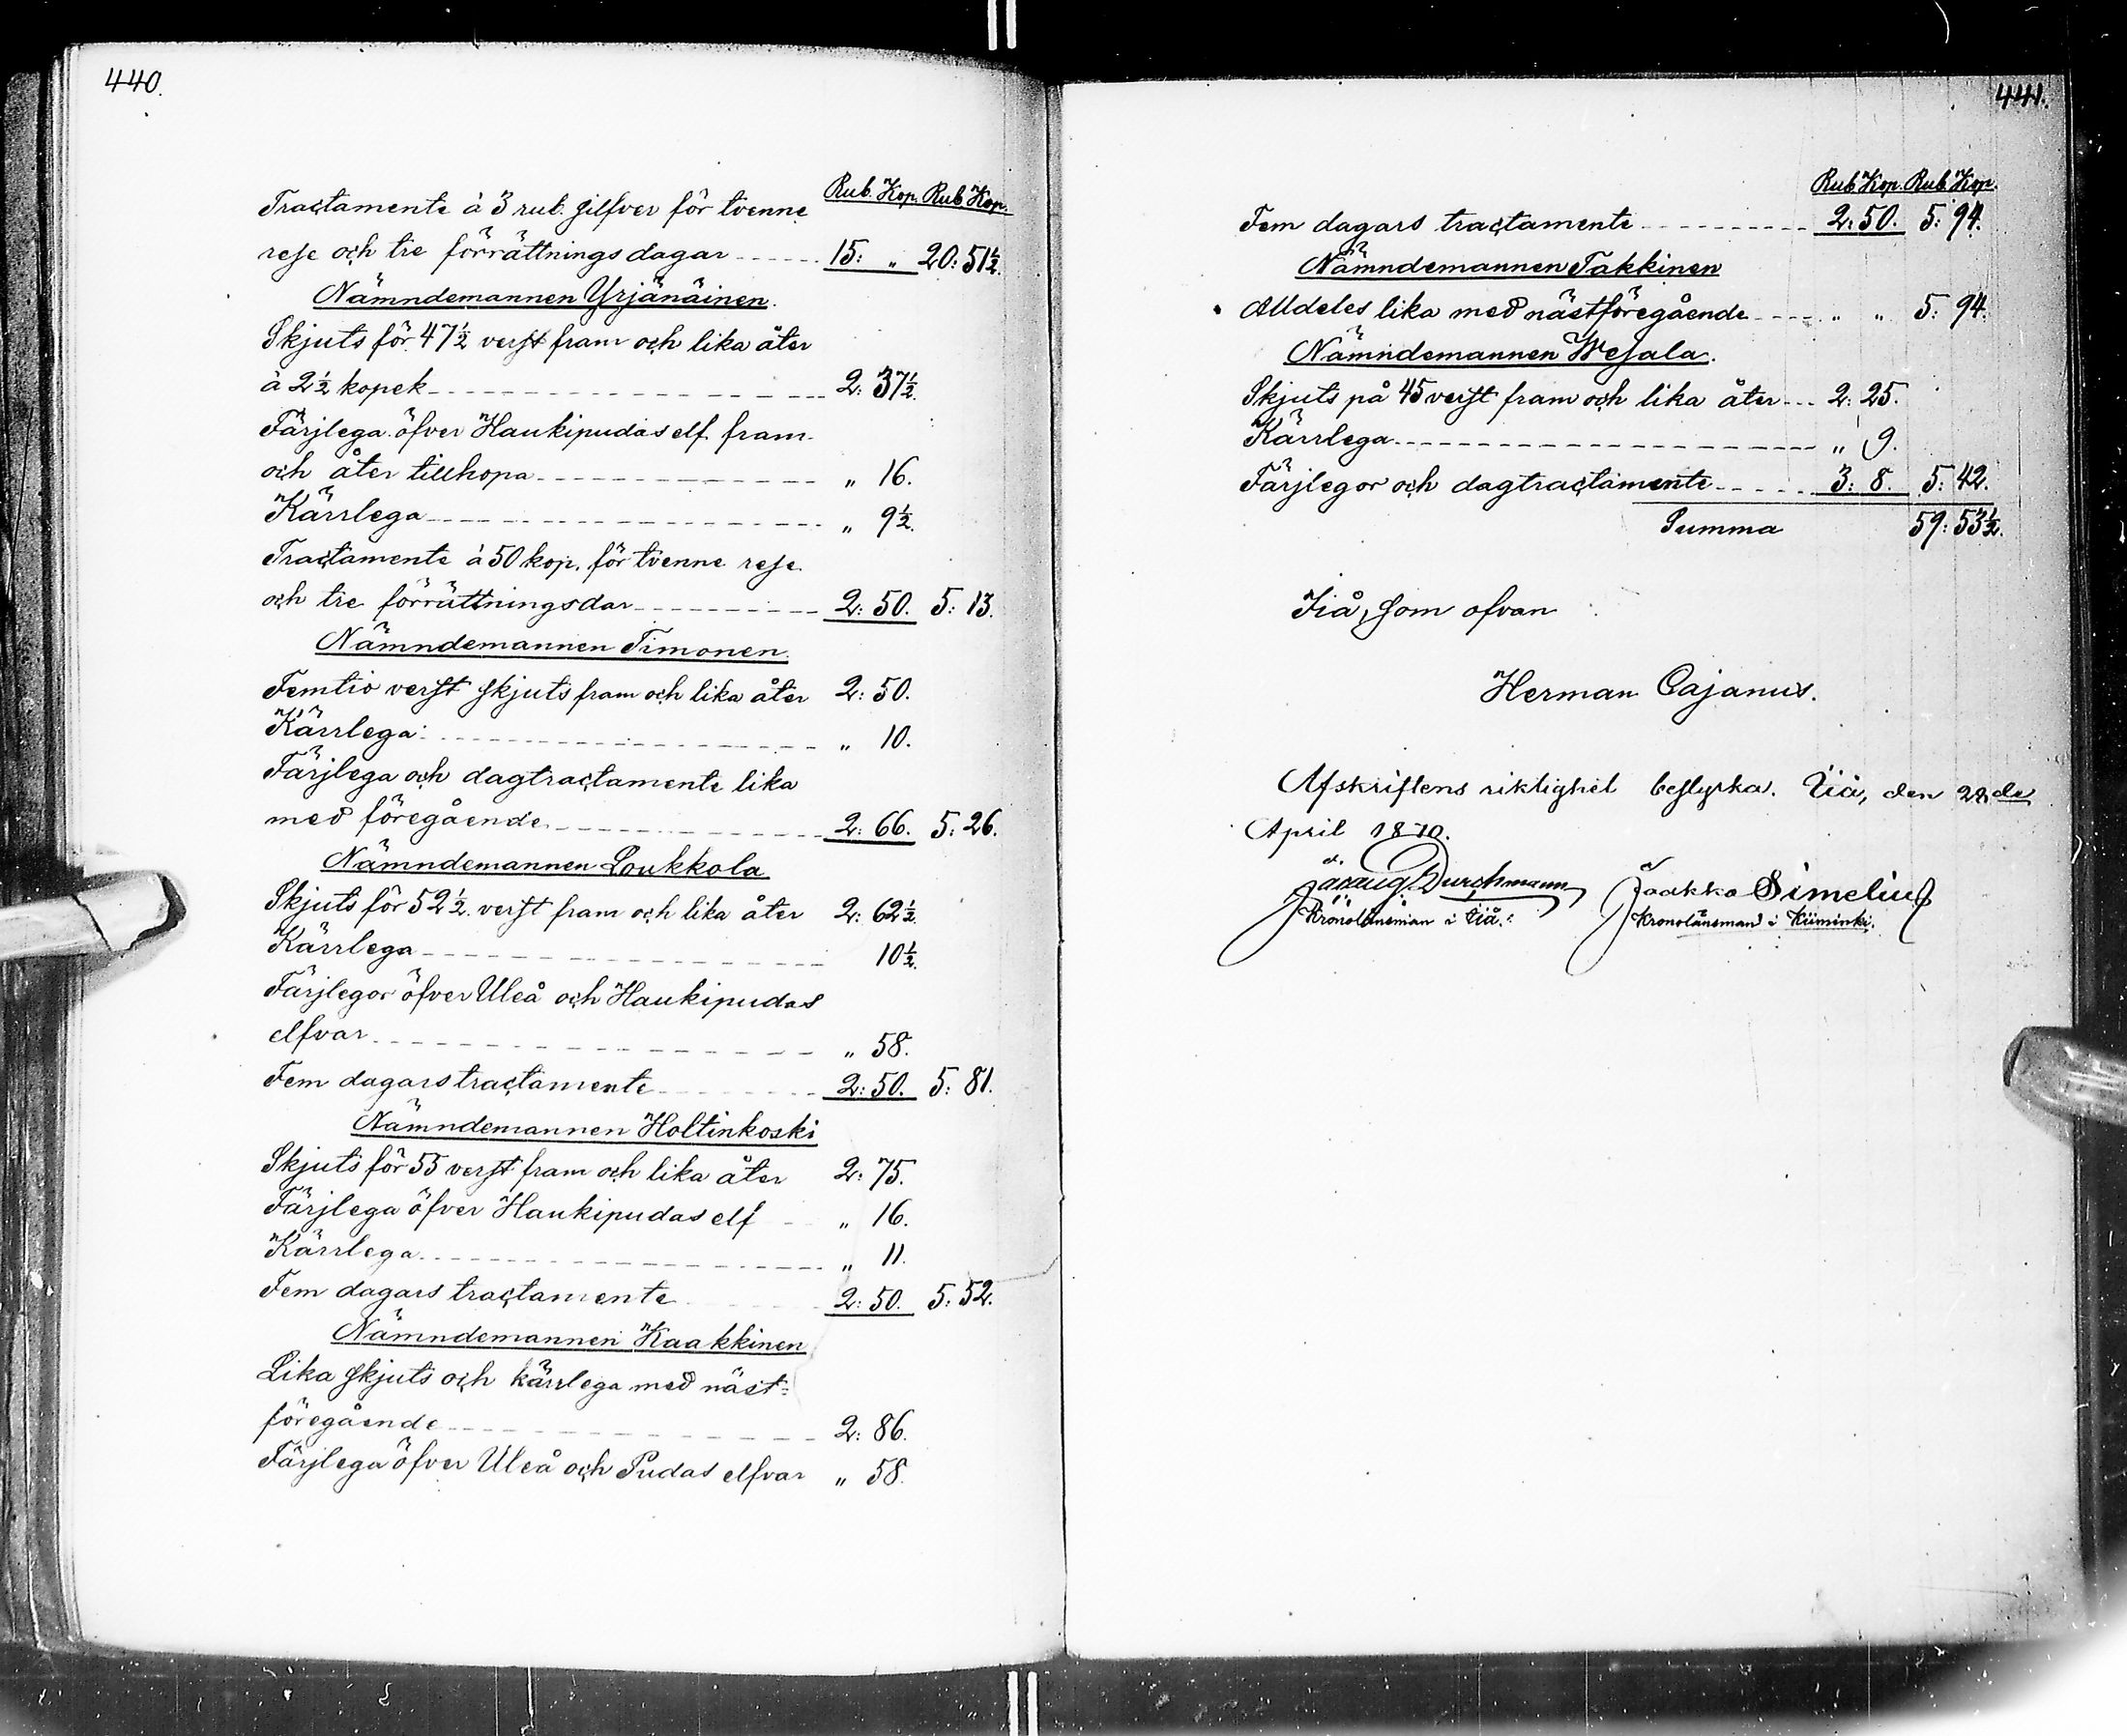 440.
Rub. Kop. Rub Kop.
Tractamente à 3 rub. silfver för tvenne
rese och tre förrättningsdagar 15: „ 20: 51½.
Nämndemannen Yrjänäinen.
Skjuts för 47½ verst fram och lika åter
à 2½ kopek 2: 37½.
Färjlega öfver Haukipudas elf fram
och åter tillhopa „ 16.
Kärrlega „ 9½.
Tractamente à 50 kop. för tvenne rese
och tre förrättningsdar 2: 50. 5: 13.
Nämndemannen Timonen.
Femtio verst skjuts fram och lika åter 2: 50.
Kärrlega „ 10.
Färjlega och dagtractamente lika
med föregående 2: 66. 5: 26.
Nämndemannen Loukkola
Skjuts för 52½ verst fram och lika åter 2: 62½.
Kärrlega 10½.
Färjlegor öfver Uleå och Haukipudas
elfvar „ 58.
Fem dagars tractamente 2: 50. 5: 81.
Nämndemannen Holtinkoski
Skjuts för 55 verst fram och lika åter 2: 75.
Färjlega öfver Haukipudas elf „ 16.
Kärrlega „ 11.
Fem dagars tractamente 2: 50. 5: 52.
Nämndemannen Kaakkinen
Lika skjuts och kärrlega med näst-
föregående 2: 86.
Färjlega öfver Uleå och Pudas elfvar „ 58.
441.
Rub Kop. Rub Kop.
Fem dagars tractamente 2: 50. 5: 94.
Nämndemannen Takkinen
Alldeles lika med nästföregående „ „ 5: 94.
Nämndemannen Wesala.
Skjuts på 45 verst fram och lika åter 2: 25.
Kärrlega „ 9.
Färjlegor och dagtractamente 3: 8. 5: 42.
Summa 59: 53½.
Iiå, som ofvan
Herman Cajanus.
Afskriftens riktighet bestyrka. Iiå, den 28de
April 1870.
Durchmann Jaakko Simelius
Kronolänsman i Iiå. Kronolänsmand i Kiiminki.